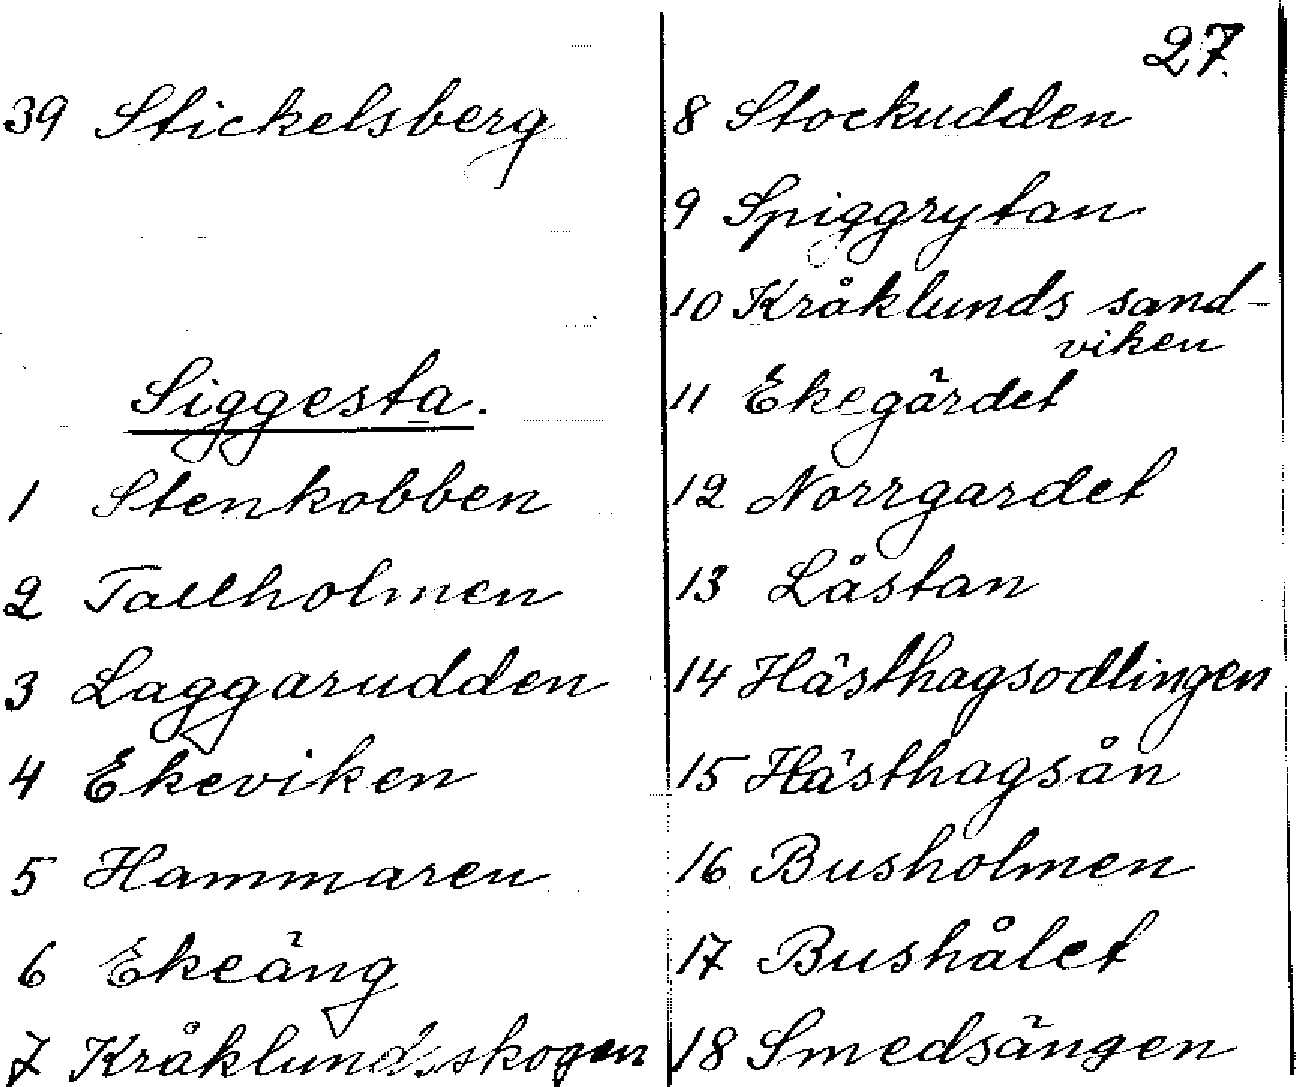 27.
39 Stickelsberg
Siggesta.
1 Stenkobben
2 Tallholmen
3 Laggarudden
4 Ekeviken
5 Hammaren
6 Ekeäng
7 Kråklundsskogen
8 Stockudden
9 Spiggrytan
10 Kråklunds sand-
viken
11 Ekegärdet
12 Norrgardet
13 Låstan
14 Hästhagsodlingen
15 Hästhagsån
16 Busholmen
17 Bushålet
18 Smedsängen